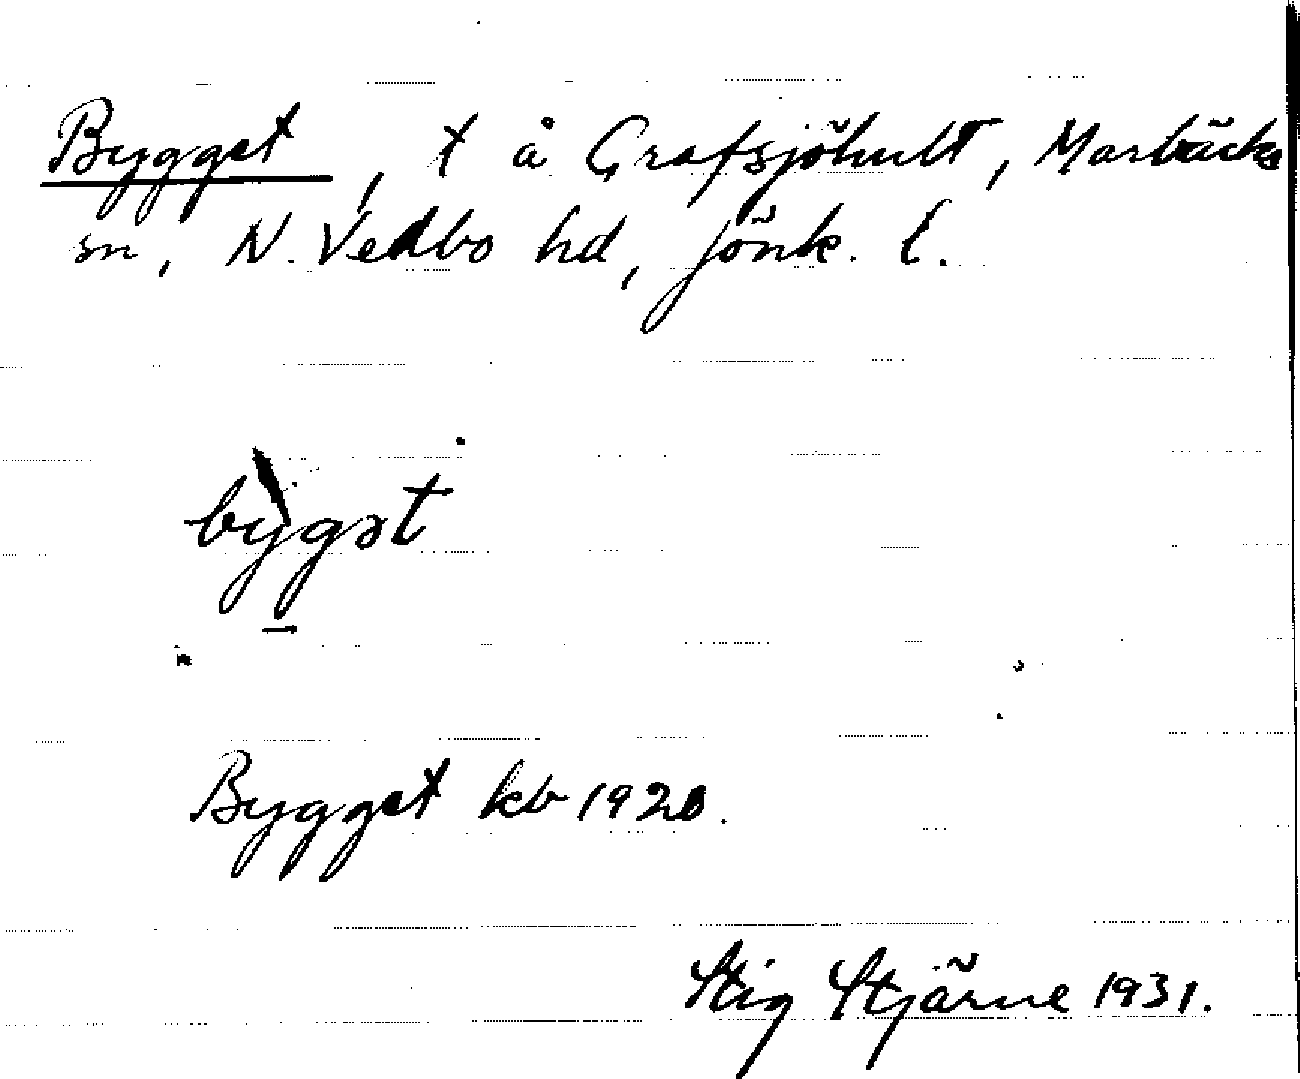 Bygget, t å Grafsjöhult, Marbäcks
sn, N. Vedbo hd, Jönk. l.
bỳgət
Bygget kb 1920.
Stig Stjärne 1931.